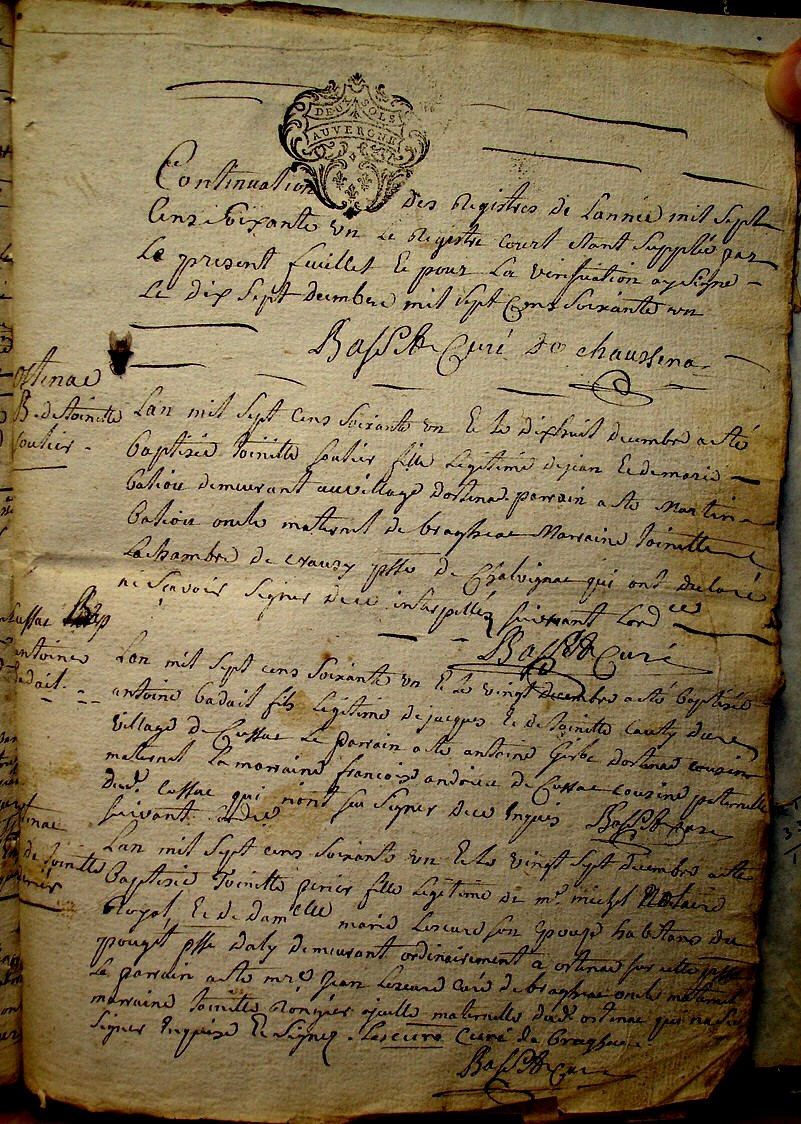 DEUX SOLS
AUVERGNE
Continuation des Registres de Lannée mil Sept
Cens Soixante un Le Registre court etant Supplée par
Le present feuillet Et pour La verification ay Signé
Le dix Sept decembre mil Sept Cens Soixante un
Curé de chaussena
ostenac
B. de toinette
soutier
Lan mil Sept cens Soixante un Et le dixhuit decembre a eté
baptisée toinette soutier fille Legitime de jean Et de marie
batiou demeurant au village dostenac parrain a eté Martin
batiou oncle maternel de braghac Marraine toinette
Lachambre de crauzy psse de Chalvignac qui ont declaré
ne Scavoir Signer de ce interpellés Suivant Lord ce
Curé
Cussac Bap
antoine
badait
Lan mil Sept cens Soixante un Et le vingt decembre a eté baptisé
antoine badait fils Legitime de jacques Et de toinette cauty du
village de Cussac Le parrain a eté antoine Gerbe dostenac cousin
maternel La marraine francoise andrieu de Cussac cousine paternelle
dud. Cussac qui nont sçu Signer de ce Enquis
Suivant
Curé
de toinette
Lan mil Sept cens Soixante un Et le vingt Sept decembre a eté
baptisée Toinette perier fille Legitime de mr. michel Notaire
Royal Et de damelle marie Lescure son Epouse habitans du
pouget psse dally demeurant ordinairement a ostenac sur cette psse
Le parrain a eté mre Jean Lescure Curé de braghac oncle maternel
marraine toinette maternelle dud. ostenac qui na Sçu
Signer Enquise Et Signez. Lescure Curé de braghac.
Curé